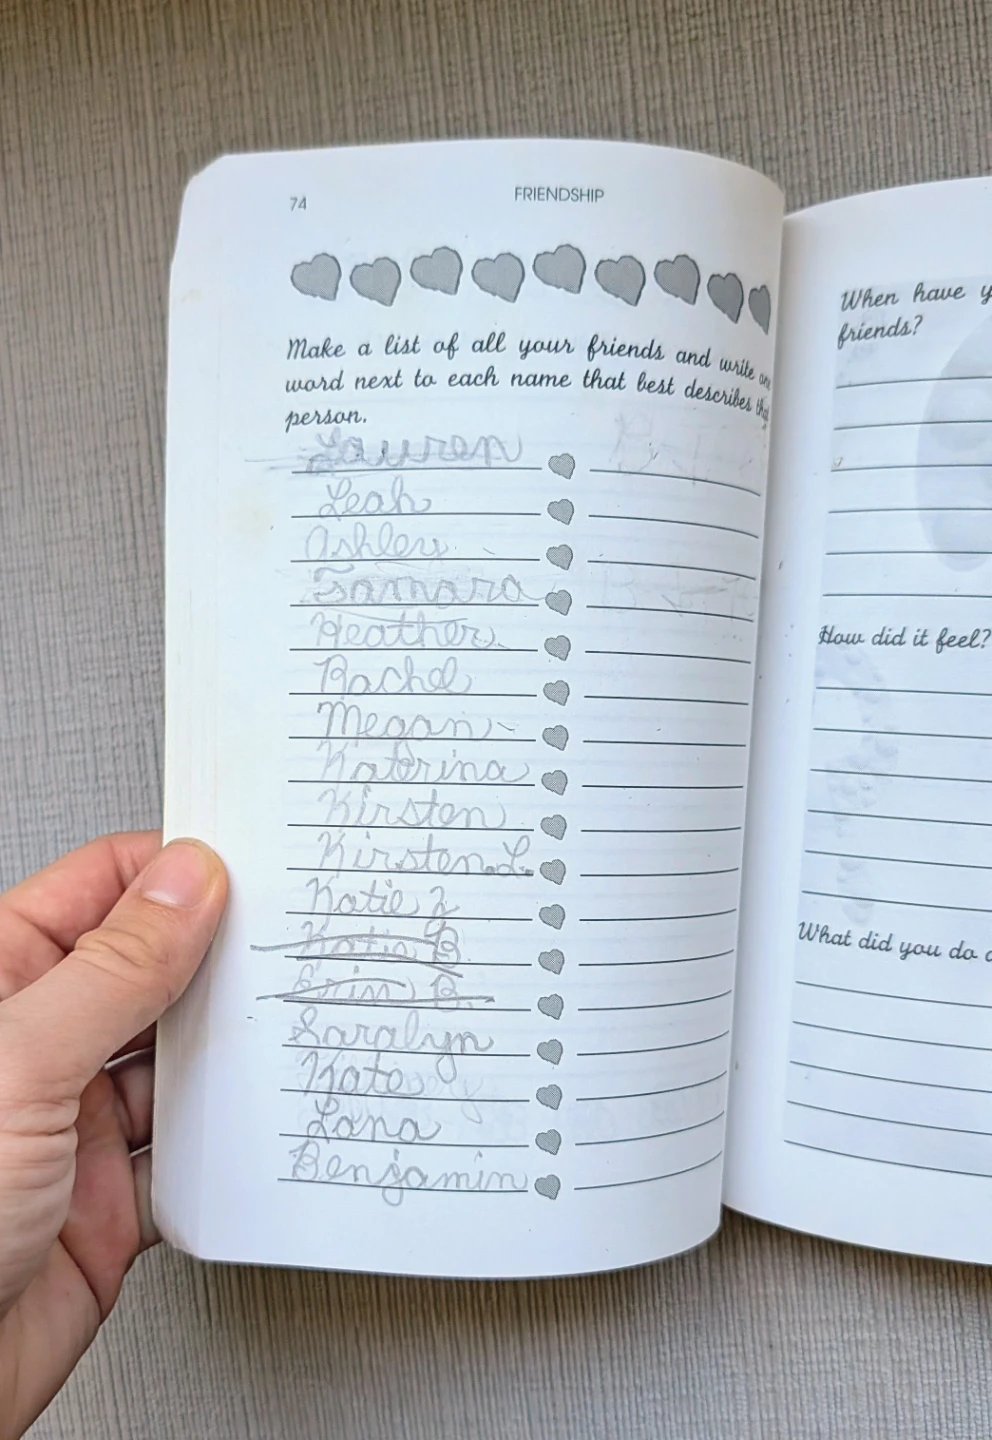 74
FRIENDSHIP
Make a list of all your friends and write one
word next to each name that best describes that
person.
Lauren
Leah
Ashley
Tamara
Heather
Rachel
Megan
Katerina
Kirsten
Kirsten L.
Katie Z
Katie B
Erin B.
Saralyn
Kate
Lana
Benjamin
When have y
friends?
How did it feel?
What did you do